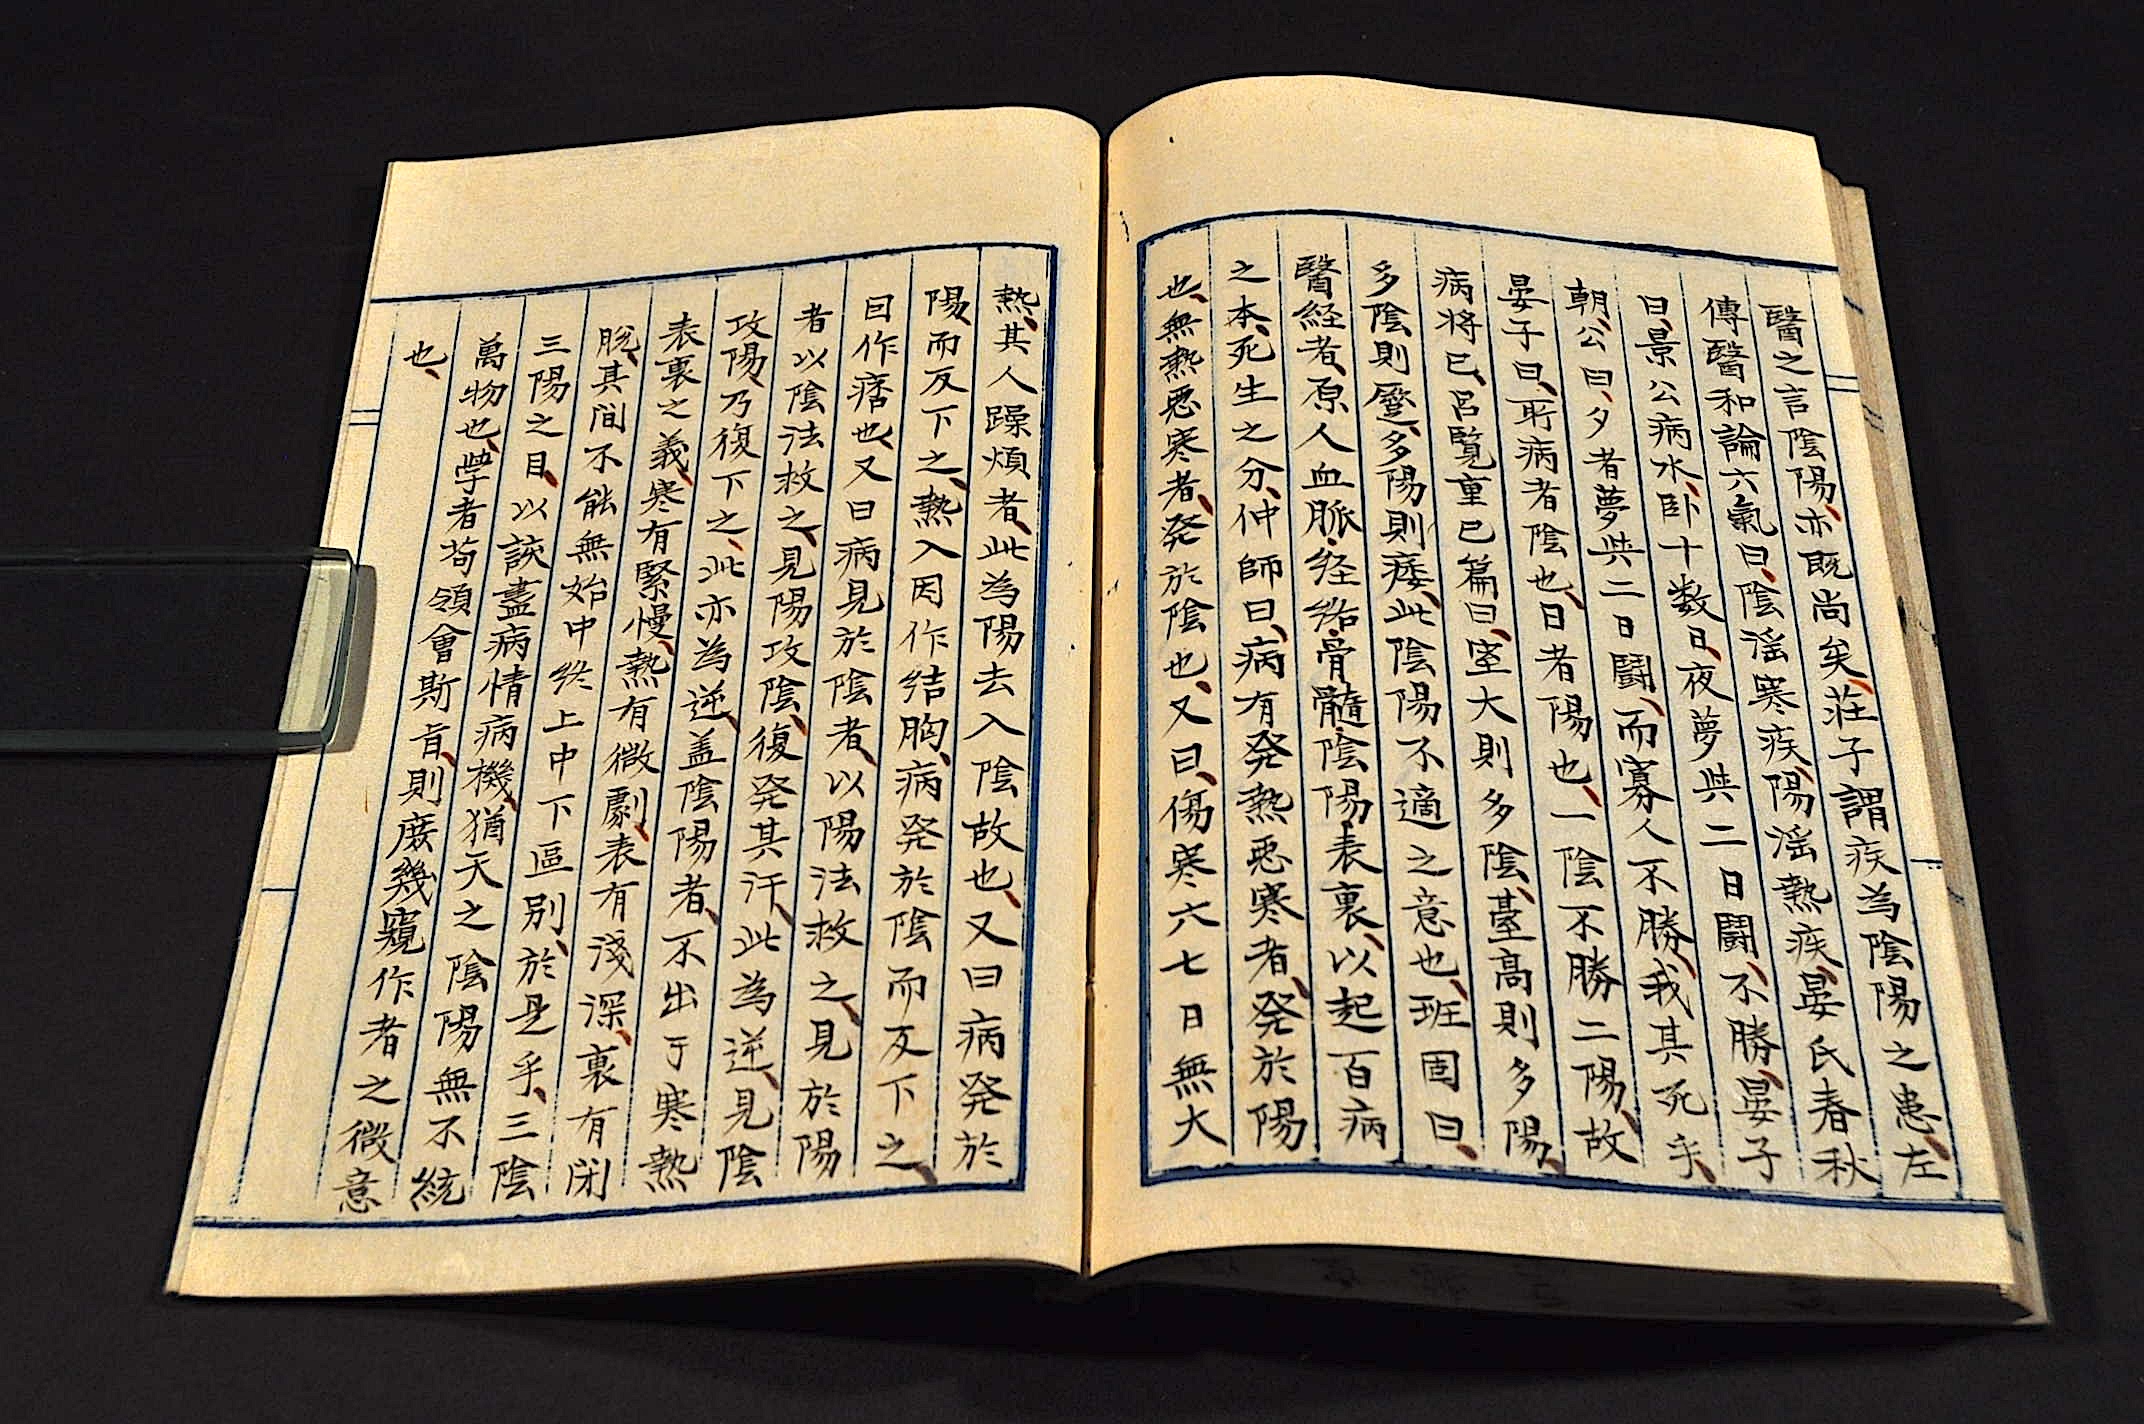 醫之言陰陽、亦既尚矣、莊子謂疾為陰陽之患、左
傳醫和論六氣曰、陰淫寒疾、陽淫熱疾、晏氏春秋
曰、景公病水、臥十数日、夜夢與二日鬪、不勝、晏子
朝、公曰、夕者夢與二日鬪、而寡人不勝、我其死乎、
晏子曰、所病者陰也、日者陽也、一陰不勝二陽、故
病将已、呂覧重己篇曰、室大則多陰、臺高則多陽、
多陰則蹷、多陽則痿、此陰陽不適之意也、班固曰、
醫経者、原人血脈経絡骨髓陰陽表裏、以起百病
之本、死生之分、仲師曰、病有発熱悪寒者、発於陽
也、無熱悪寒者、発於陰也、又曰、傷寒六七日無大
熱、其人躁煩者、此為陽去入陰故也、又曰病発於
陽、而反下之、熱入因作結胸、病発於陰而反下之、
因作痞也、又曰病見於陰者、以陽法救之、見於陽
者以陰法救之、見陽攻陰、復発其汗、此為逆、見陰
攻陽、乃復下之、此亦為逆、盖陰陽者、不出于寒熱
表裏之義、寒有緊慢、熱有微劇、表有淺深、裏有閉
脱、其间不能無始中終上中下區別、於是乎、三陰
三陽之目、以該盡病情病機、猶天之陰陽無不統
萬物也、學者苟領會斯旨、則庶幾窺作者之微意
也、